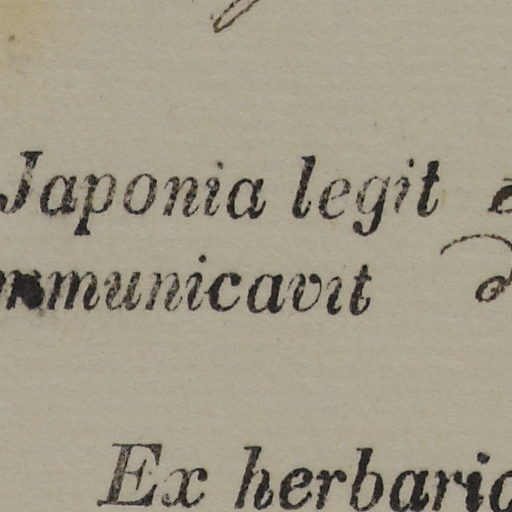 Japonia legit
mmunicavit
Ex herbario